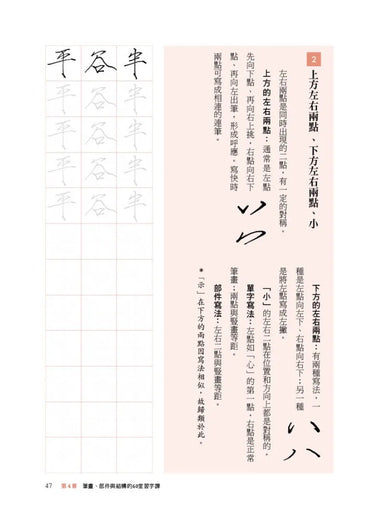 2
上方左右兩點、下方左右兩點、小
左右兩點是同時出現的二點，有一定的對稱。
上方的左右兩點：通常是左點
先向下點、再向右上挑，右點向右下
點、再向左出筆，形成呼應。寫快時
兩點可寫成相連的連筆。
下方的左右兩點：有兩種寫法，一
種是左點向左下、右點向右下；另一種
是將左點寫成左撇。
「小」的左右二點在位置和方向上都是對稱的。
單字寫法：左點如「心」的第一點，右點是正常
筆畫；兩點與豎畫等距。
部件寫法：左右二點與豎畫等距。
＊「示」在下方的兩點因寫法相似，故歸類於此。
半 半 半 半 半
谷 谷 谷 谷 谷
平 平 平 平 平
47 第4章 筆畫、部件與結構的60堂習字課